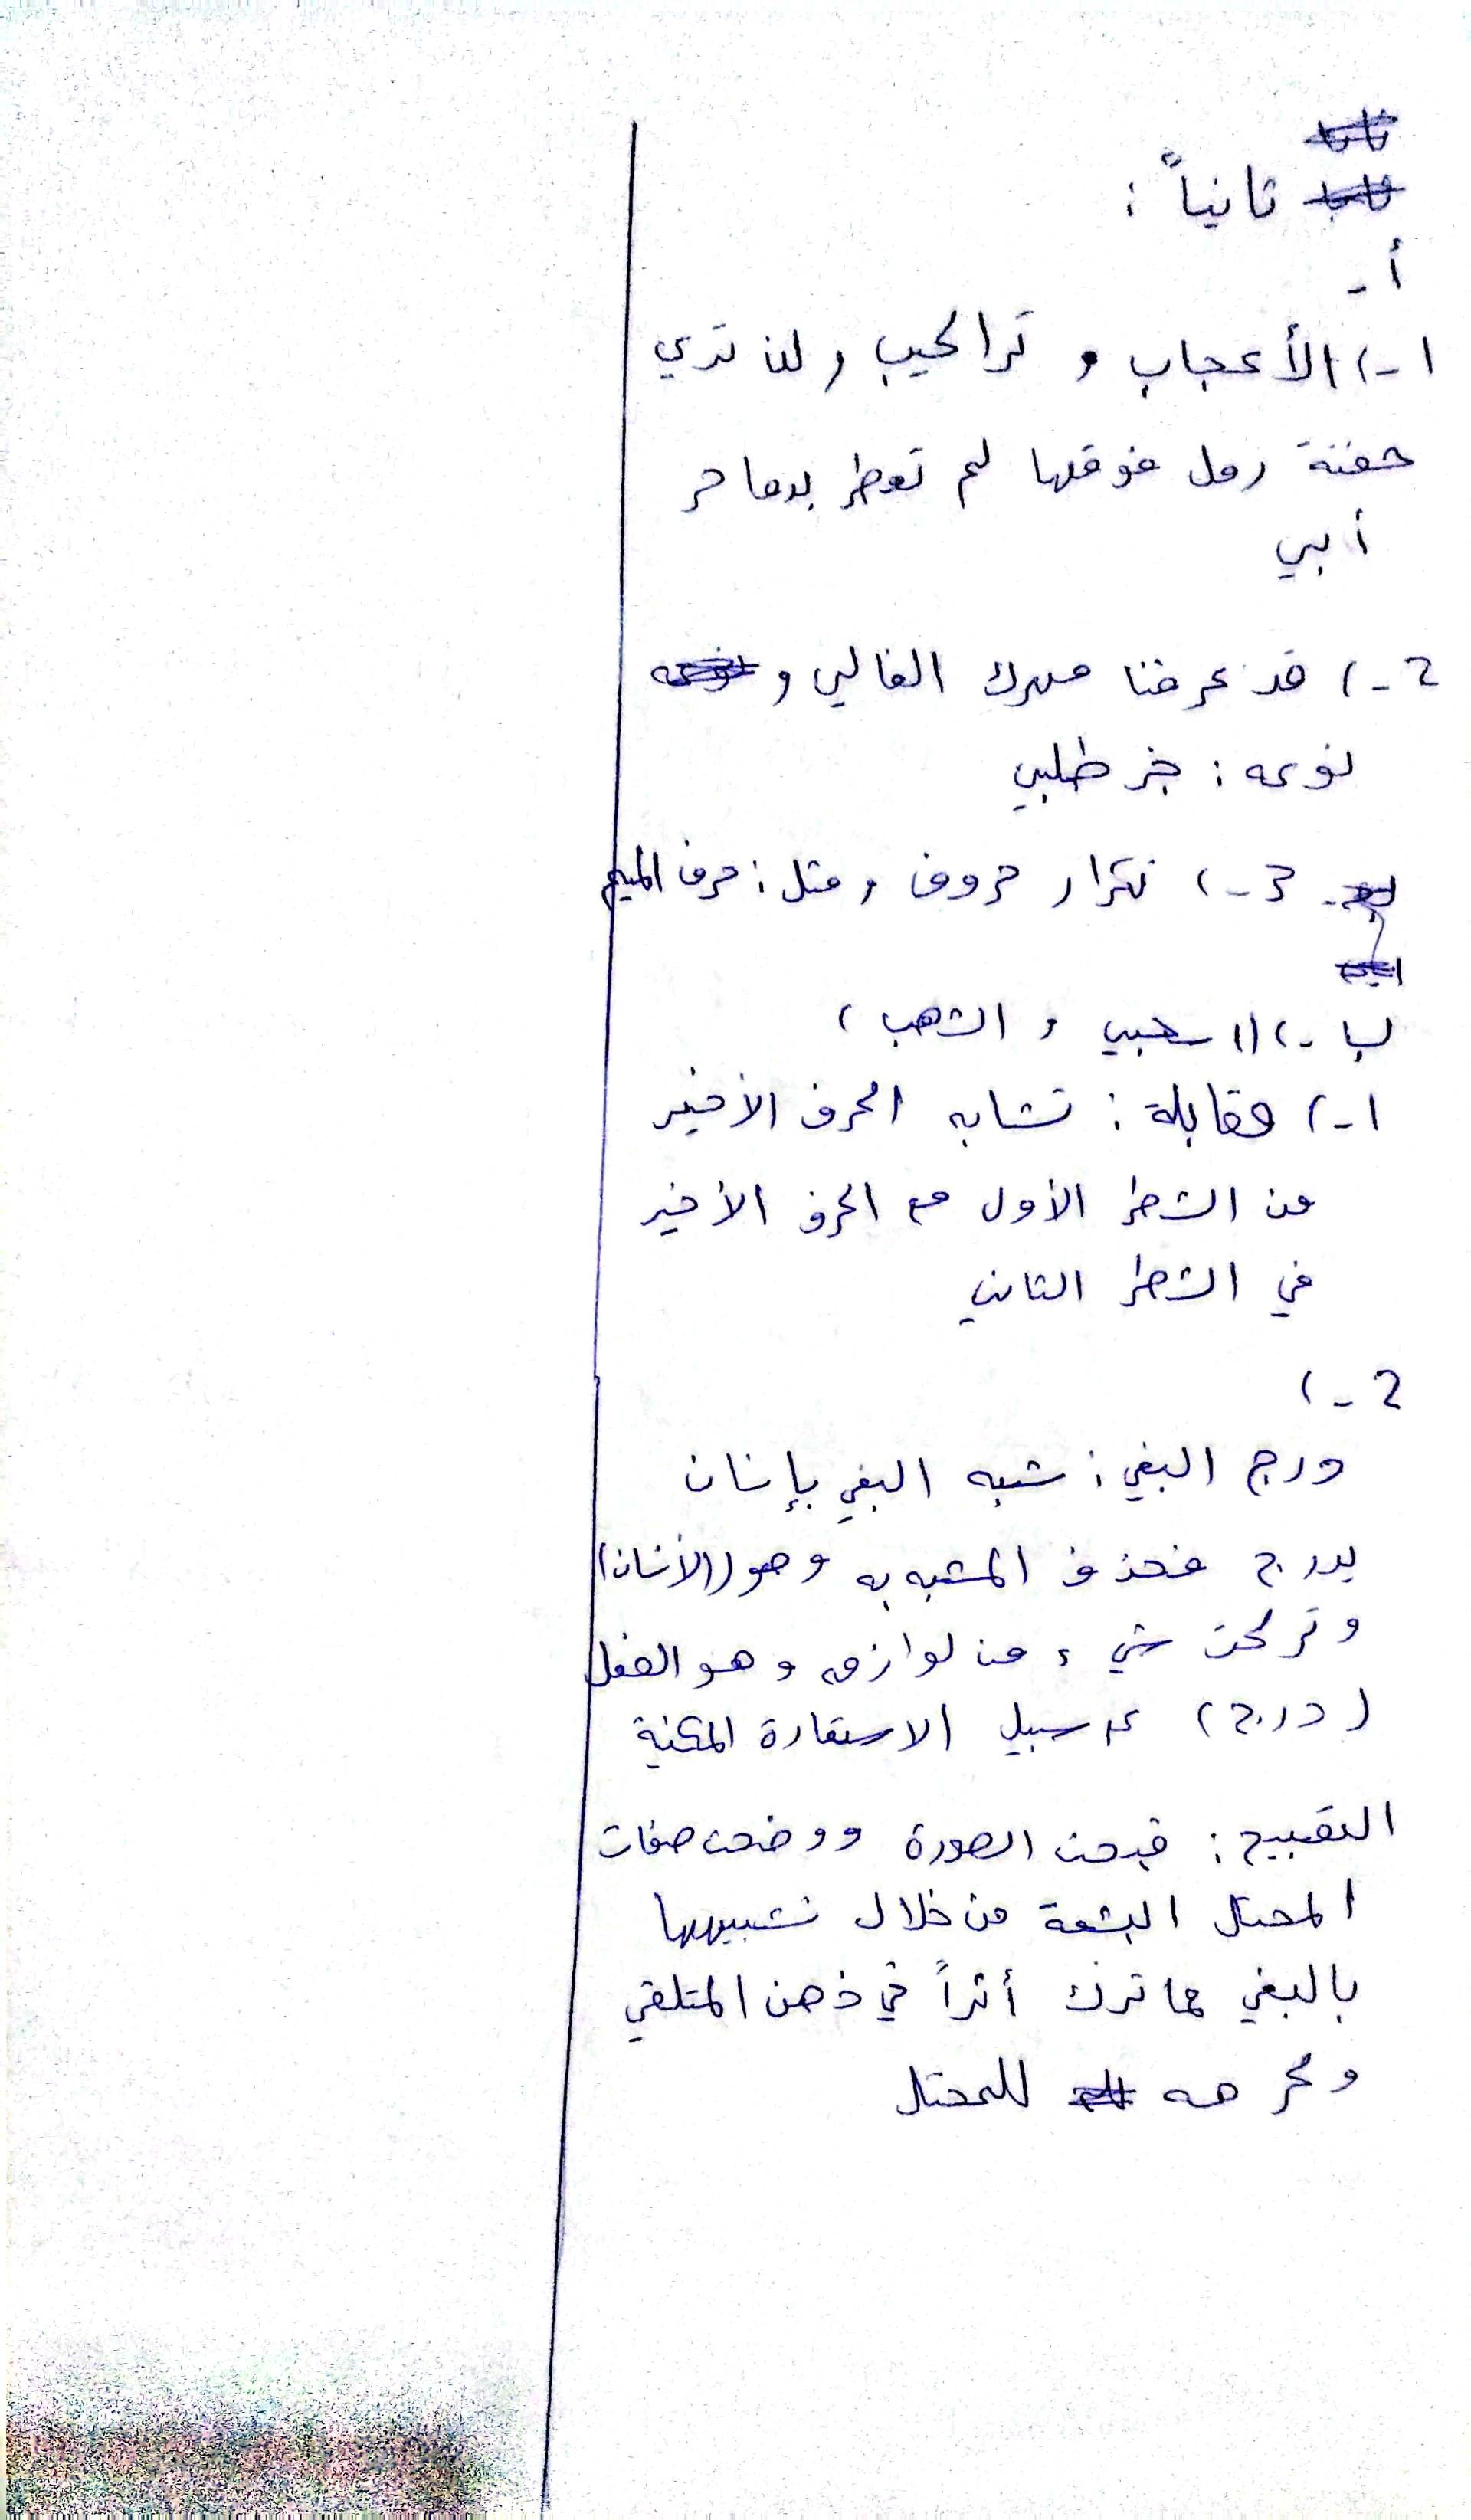 ثانياً :
أ -
1 -) الأعجاب و تراكيب ، لن تري
حفنة رمل فوقها لم تعطر بدما حر
أبي
2 -) قد عرفنا مهرك الغالي و
نوعه : خبر طلبي
3 -) تكرار حروف ، مثل : حرف الميم
ب -) (( سحبي ، الشهب )
1 -) مقابلة : تشابه الحرف الأخير
من الشطر الأول مع الحرف الأخير
في الشطر الثاني
2 -)
درج البغي : شبه البغي بإنسان
يدرج فحذف المشبه به وهو ((الأنسان)
وتركت شيء من لوازمه وهو الفعل
( درج ) على سبيل الاستعارة المكنية
التقبيح : قبحت الصورة ووضحت صفات
المحتل البشعة من خلال تشبيهها
بالبغي مما ترك أثراً في ذهن المتلقي
وكرهه للمحتل